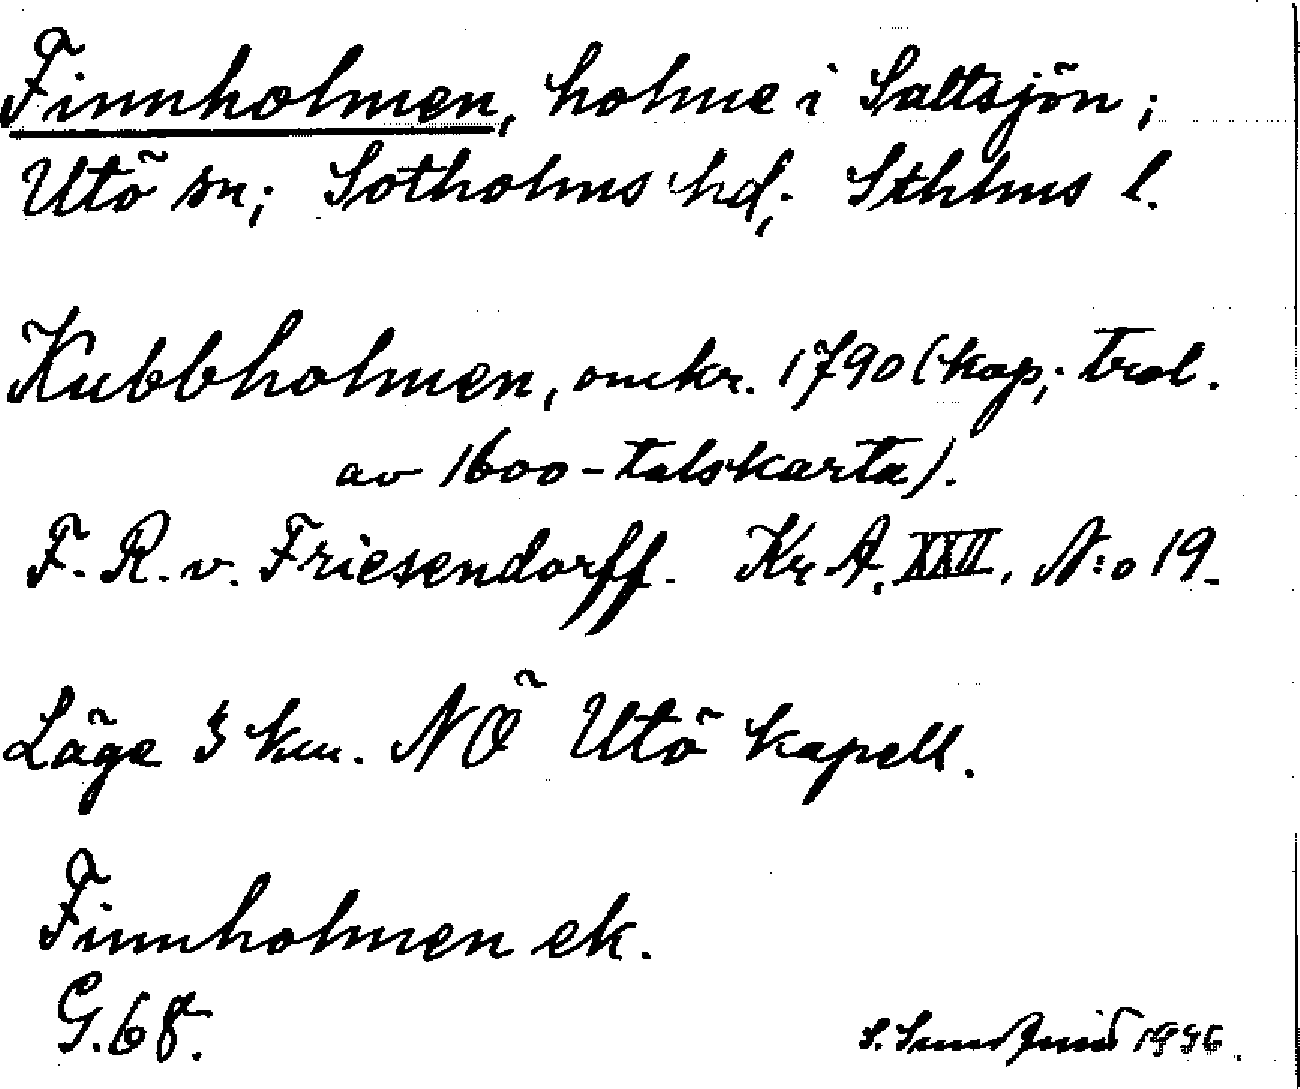 Finnholmen, holme i Saltsjön;
Utö sn; Sotholms hd; Sthlms l.
Kubbholmen, omkr. 1790 (kop; trol.
av 1600-talskarta).
F. R. v. Friesendorff. Kr A. XXII, N:o 19.
Läge 3 km. NÖ Utö kapell.
Finnholmen ek.
G. 68.
S.